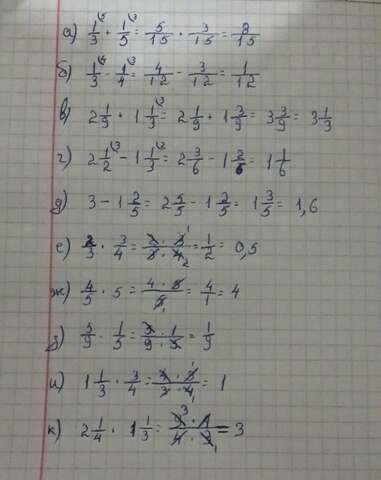 а) 1/3 + 1/5 = 5/15 + 3/15 = 8/15
б) 1/3 - 1/4 = 4/12 - 3/12 = 1/12
в) 2 1/9 + 1 1/3 = 2 1/9 + 1 3/9 = 3 3/9 = 3 1/3
г) 2 1/2 - 1 1/3 = 2 3/6 - 1 2/6 = 1 1/6
д) 3 - 1 2/5 = 2 5/5 - 1 2/5 = 1 3/5 = 1,6
е) 2/3 · 3/4 = 2 · 3/3 · 4 = 1/2 = 0,5
ж) 4/5 · 5 = 4 · 5/5 = 4/1 = 4
з) 5/9 · 1/5 = 5 · 1/9 · 5 = 1/9
и) 1 1/3 · 3/4 = 4 · 3/3 · 4 = 1
к) 2 1/4 · 1 1/3 = 9 · 4/4 · 3 = 3